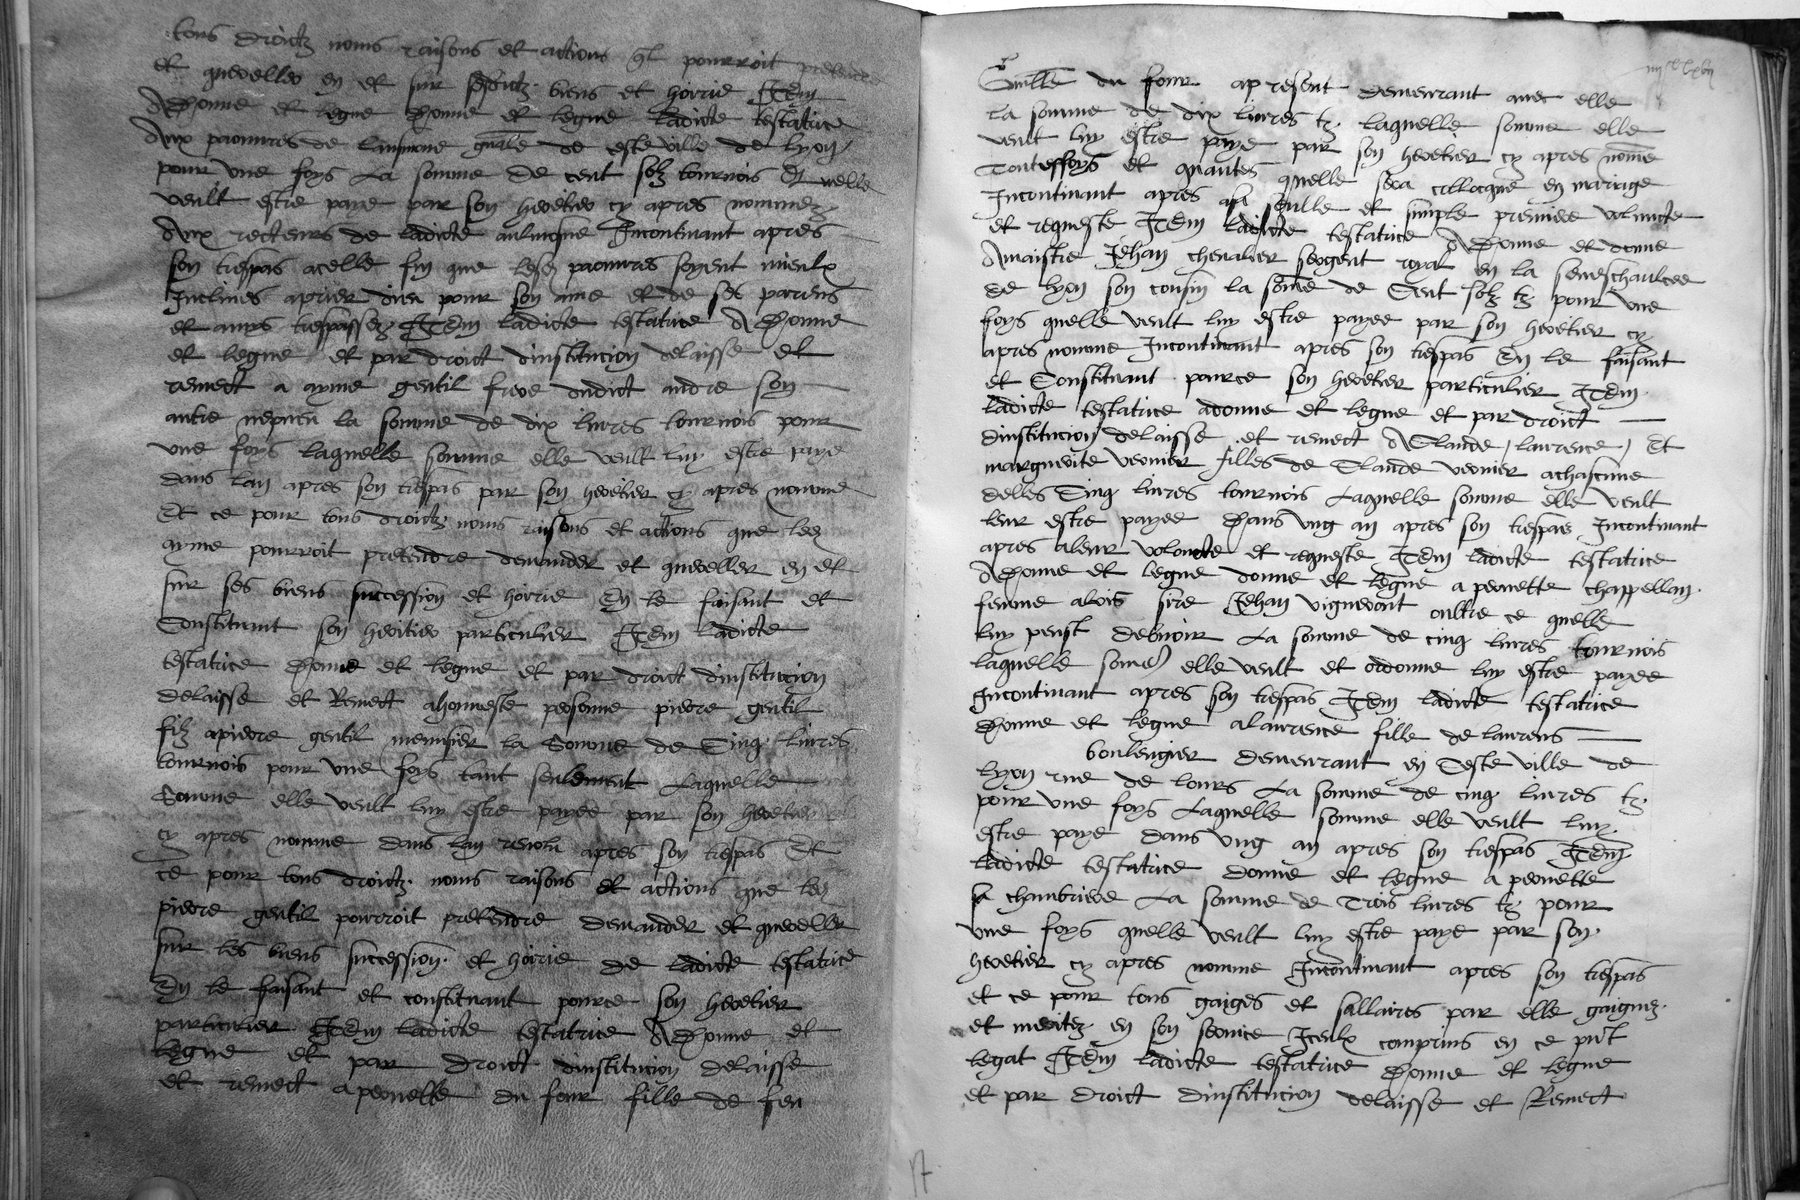 tous droictz noms raisons et actions ql pourroit pretendre
et quereller en et sur sesdictz biens et hoirie Item
A donne et legue donne et legue ladicte testatrice
Aux paouvres de laumosne gnale de ceste ville de lyon
pour une foys La somme de cent solz tournois Et uelle
veult estre paye par son heretier cy apres nommez
Aux recteurs de ladicte aulmosne Incontinant apres
son trespas acelle fin que lesd paouvres soyent mieulx
Inclines aprier dieu pour son ame et de ses parens
et amys trespassez Item ladicte testatrice A donne
et legue et par droict dinstitucion delaisse et
remect a ayme gentil frere dudict andre son
autre nepveu la somme de dix livres tournois pour
une foys laquelle somme elle veult luy estre paye
dans lan apres son trespas par son heretier cy apres nomme
Et ce pour tous droictz noms raisons et actions que led
ayme pourroit pretendre demander et quereller en et
sur ses biens succession et hoirie En le faisant et
Constituant son heritier particulier Item ladicte
testatrice donne et legue et par droict dinstitucion
delaisse et Remect ahonneste personne pierre gentil
filz apierre gentil menusier la Somme de Cinq livres
tournois pour une foys tant seulement Laquelle
Somme elle veult luy estre payee par son heretier
cy apres nomme dans lan revolu apres son trespas Et
ce pour tous droictz noms raisons et actions que led
pierre gentil pourroit pretendre demander et quereller
sur les biens succession et hoirie de ladicte testatrice
En le faisant et constituant pource son heretier
particulier Item ladicte testatrice A donne et
legue et par droict dinstitucion delaisse
et remect a peronette du four fille de feu
Guillme du four apresent demeurant avec elle
La somme de dix livres tz laquelle somme elle
veult luy estre paye par son heretier cy apres nome
Toutesfoys et quantes quelle sera collocque en mariage
Incontinant apres asa seulle et simple premiere volunte
et requeste Item ladicte testatrice A donne et donne
Amaistre Jehan chevalier sergent royal en la seneschaulcee
de lyon son cousin la some de Cent solz tz pour une
foys quelle veult luy estre payee par son heretier cy
apres nomme Incontinant apres son trespas En le faisant
et Constituant pource son heretier particulier Item
ladicte testatrice adonne et legue et par droict
dinstitucion delaisse et remect A Claude, laurence, Et
marguerite vernier filles de Claude vernier achascune
delles Cinq livres tournois Laquelle somme elle veult
leur estre payee dans ung an apres son trespas Incontinant
apres aleur volonte et requeste Item ladicte testatrice
A donne et legue donne et legue a peronette chappellan
femme alois sire Jehan vigneront oultre ce quelle
luy peust debvoir La somme de cinq livres tournois
laquelle some elle veult et ordonne luy estre payee
Incontinant apres son trespas Item ladicte testatrice
donne et legue alaurence fille de laurens
boulengier demeurant en Ceste ville de
lyon rue de lours La somme de cinq livres tz
pour une foys Laquelle somme elle veult luy
estre paye dans ung an apres son trespas Item
ladicte testatrice donne et legue a peronette
sa chambriere La somme de Trois livres tz pour
une foys quelle veult luy estre paye par son
heretier cy apres nomme Incontinant apres son trespas
et ce pour tous gaiges et sallaires par elle gaignez
et meritez en son service Iceulx comprins en ce pnt
legat Item ladicte testatrice donne et legue
et par droict dinstitucion delaisse et Remect
17